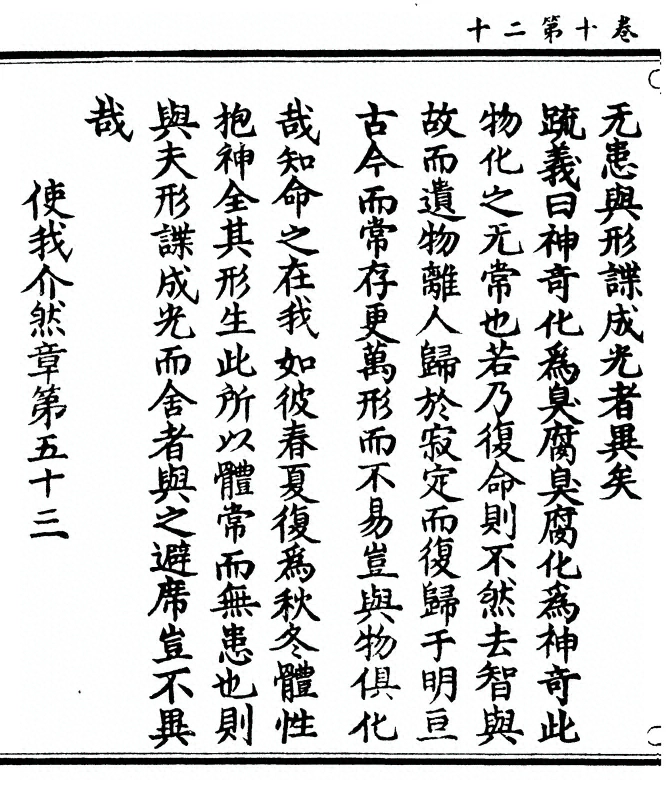 卷十第二十
无患與形諜成光者異矣
疏義曰神奇化為臭腐臭腐化為神奇此
物化之无常也若乃復命則不然去智與
故而遺物離人歸於寂定而復歸于明亘
古今而常存更萬形而不易豈與物俱化
哉知命之在我如彼春夏復為秋冬體性
抱神全其形生此所以體常而無患也則
與夫形諜成光而舍者與之避席豈不異
哉
使我介然章第五十三